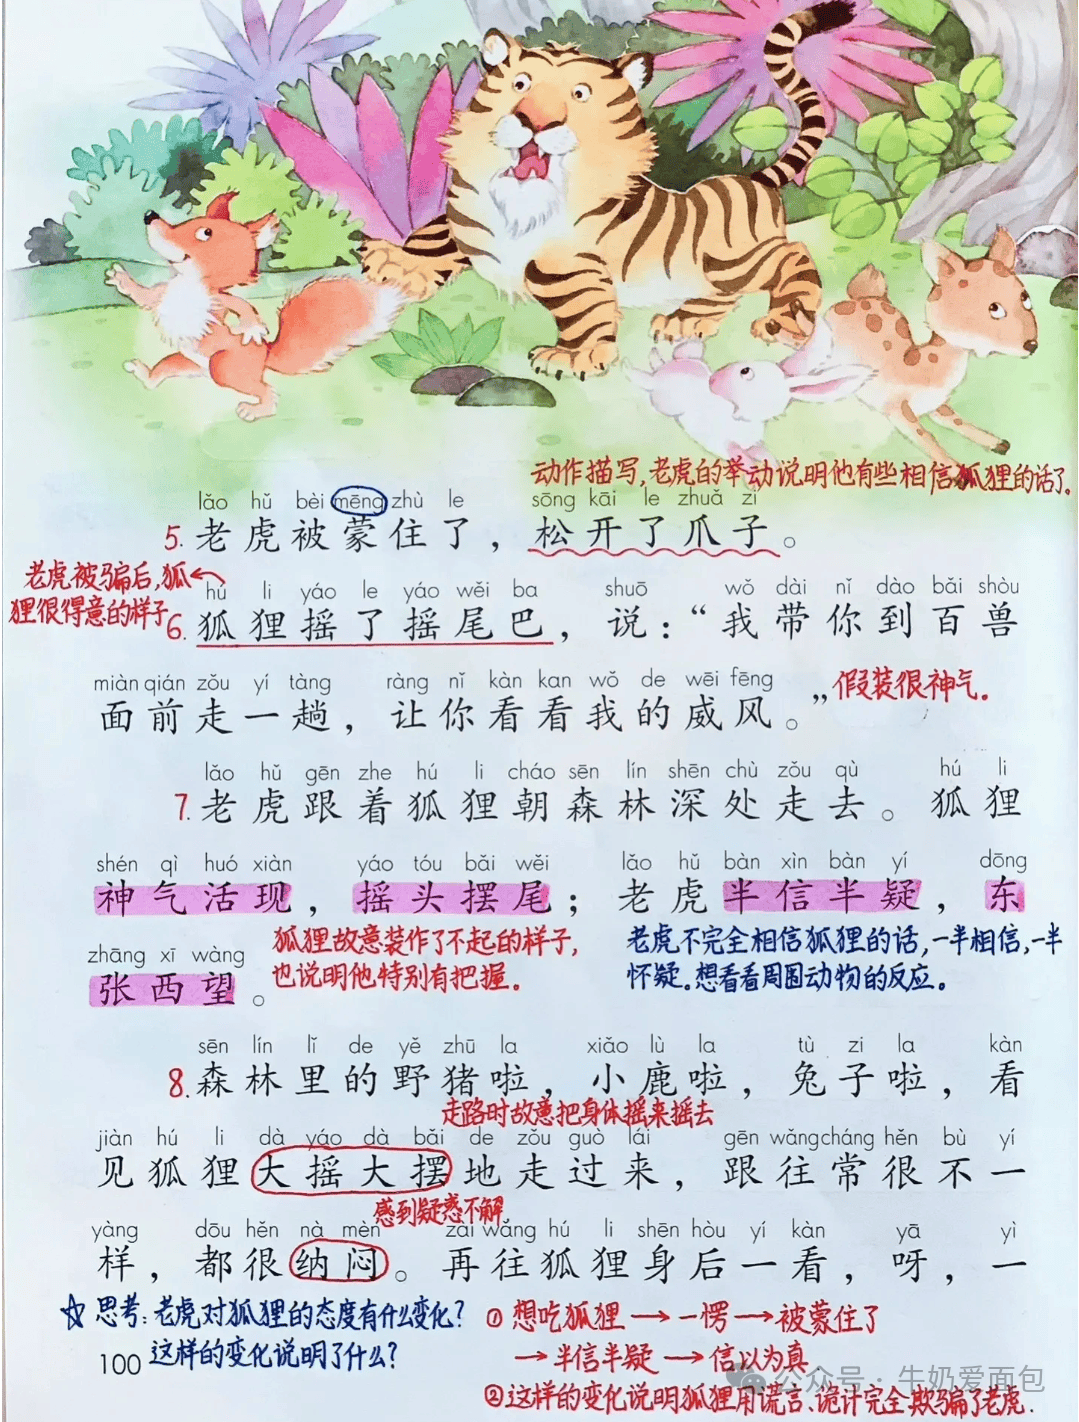 动作描写，老虎的举动说明他有些相信狐狸的话了。
lǎo hǔ bèi mēng zhù le sōng kāi le zhuǎ zi
5. 老虎被蒙住了，松开了爪子。
老虎被骗后，狐
狸很得意的样子
hú li yáo le yáo wěi ba shuō wǒ dài nǐ dào bǎi shòu
6. 狐狸摇了摇尾巴，说：“我带你到百兽
miàn qián zǒu yí tàng ràng nǐ kàn kan wǒ de wēi fēng
面前走一趟，让你看看我的威风。”
假装很神气。
lǎo hǔ gēn zhe hú li cháo sēn lín shēn chù zǒu qù hú li
7. 老虎跟着狐狸朝森林深处走去。狐狸
shén qì huó xiàn yáo tóu bǎi wěi lǎo hǔ bàn xìn bàn yí dōng
神气活现，摇头摆尾；老虎半信半疑，东
zhāng xī wàng
张西望。
狐狸故意装作了不起的样子，
也说明他特别有把握。
老虎不完全相信狐狸的话，一半相信，一半
怀疑。想看看周围动物的反应。
sēn lín lǐ de yě zhū la xiǎo lù la tù zi la kàn
8. 森林里的野猪啦，小鹿啦，兔子啦，看
走路时故意把身体摇来摇去
jiàn hú li dà yáo dà bǎi de zǒu guò lái gēn wǎng cháng hěn bù yí
见狐狸大摇大摆地走过来，跟往常很不一
感到疑惑不解
yàng dōu hěn nà mèn zài wǎng hú li shēn hòu yí kàn yā yì
样，都很纳闷。再往狐狸身后一看，呀，一
☆思考：老虎对狐狸的态度有什么变化？
这样的变化说明了什么？
①想吃狐狸→一愣→被蒙住了
→半信半疑→信以为真
②这样的变化说明狐狸用谎言、诡计完全欺骗了老虎.
100
公众号·牛奶爱面包